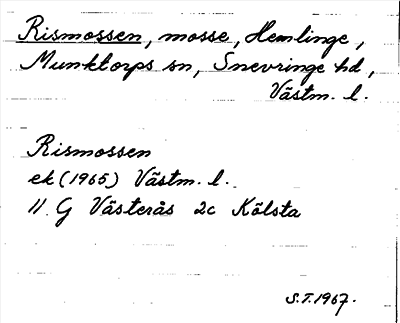 Rismossen, mosse, Hemlinge,
Munktorps sn, Snevringe hd,
Västm. l.
Rismossen
ek (1965) Västm. l.
11 G Västerås 2c Kölsta
S.T. 1967.